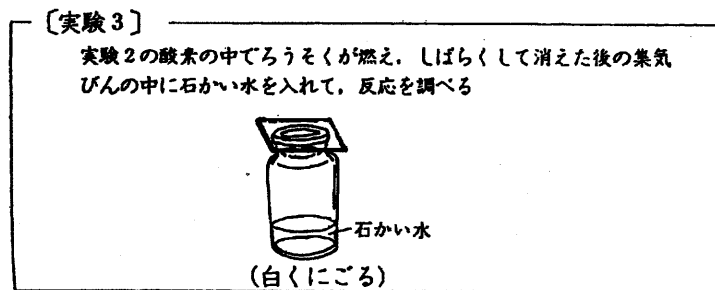 〔実験3〕
実験2の酸素の中でろうそくが燃え,しばらくして消えた後の集気
びんの中に石かい水を入れて,反応を調べる
石かい水
(白くにごる)